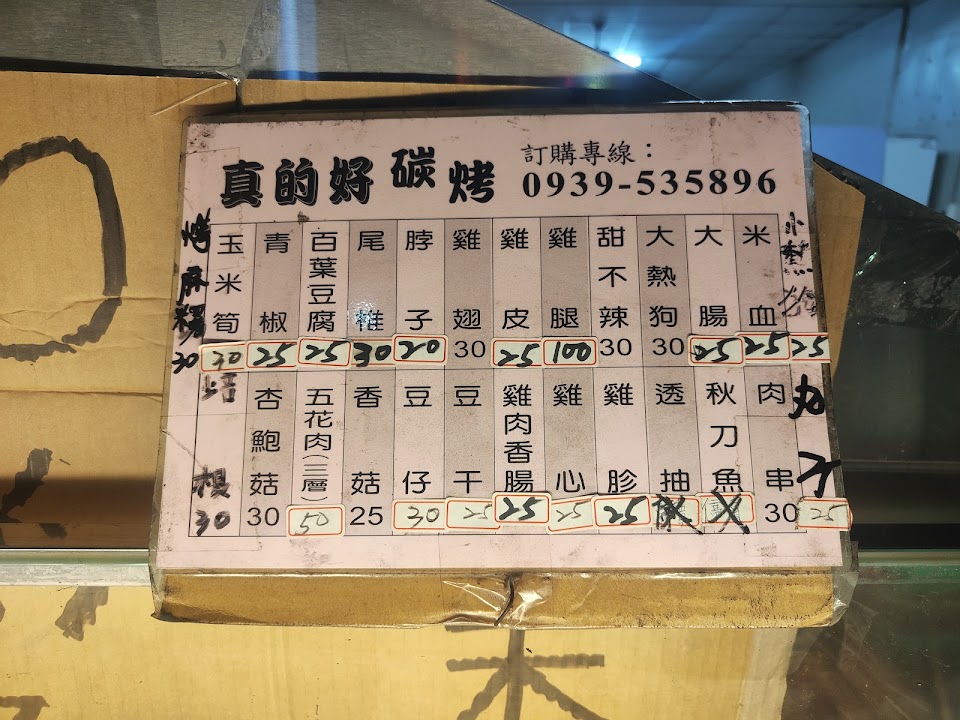 真的好碳烤
訂購專線：
0939-535896
小熱狗 25
米血 25
大腸 25
大熱狗 30
甜不辣 30
雞腿 100
雞皮 25
雞翅 30
脖子 20
尾椎 30
百葉豆腐 25
青椒 25
玉米筍 30
烤麻糬 30
丸子 25
肉串 30
秋刀魚
透抽
雞胗 25
雞心 25
雞肉香腸 25
豆干 25
豆仔 30
香菇 25
五花肉(三層) 50
杏鮑菇 30
培根 30